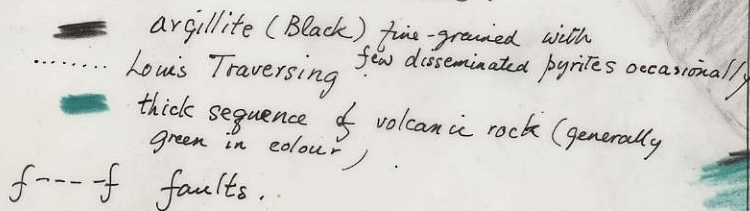 argillite (Black) fine-grained with
few disseminated pyrites occasionally
........ Louis Traversing
thick sequence of volcanic rock (generally
green in colour)
f----f faults.